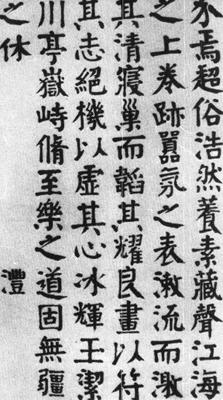 焉超俗浩然養素藏聲江海
之上卷跡囂氛之表漱流而激
其清寢巢而韜其耀良畫以符
其志絕機以虛其心冰輝王潔
川亭嶽峙脩至樂之道固無疆
之休　澧